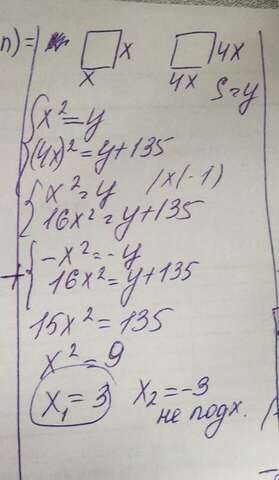 n)=
x 4x
x 4x
S=y
{x²=y
{(4x)²=y+135
{x²=y /x(-1)
{16x²=y+135
+{-x²=-y
{16x²=y+135
15x²=135
x²=9
x₁=3 x₂=-3
не подх.